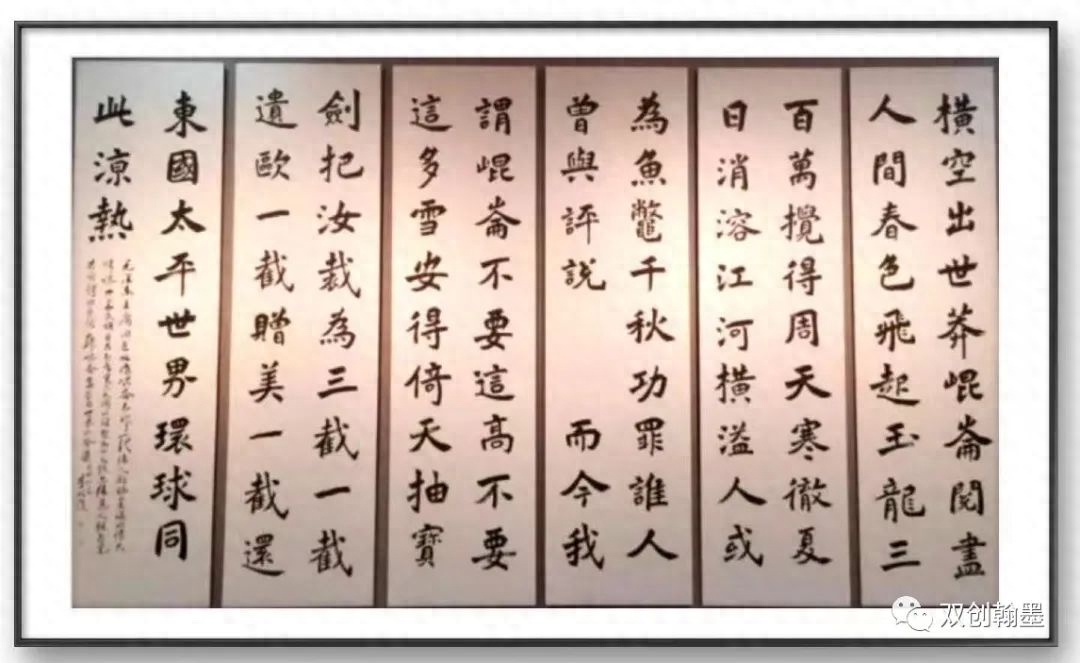 橫空出世莽崐崙閱盡
人間春色飛起玉龍三
百萬攪得周天寒徹夏
日消溶江河橫溢人或
為魚鼈千秋功罪誰人
曾與評說 而今我
謂崐崙不要這高不要
這多雪安得倚天抽寶
劍把汝裁為三截一截
遺歐一截贈美一截還
東國太平世界環球同
此涼熱
双创翰墨